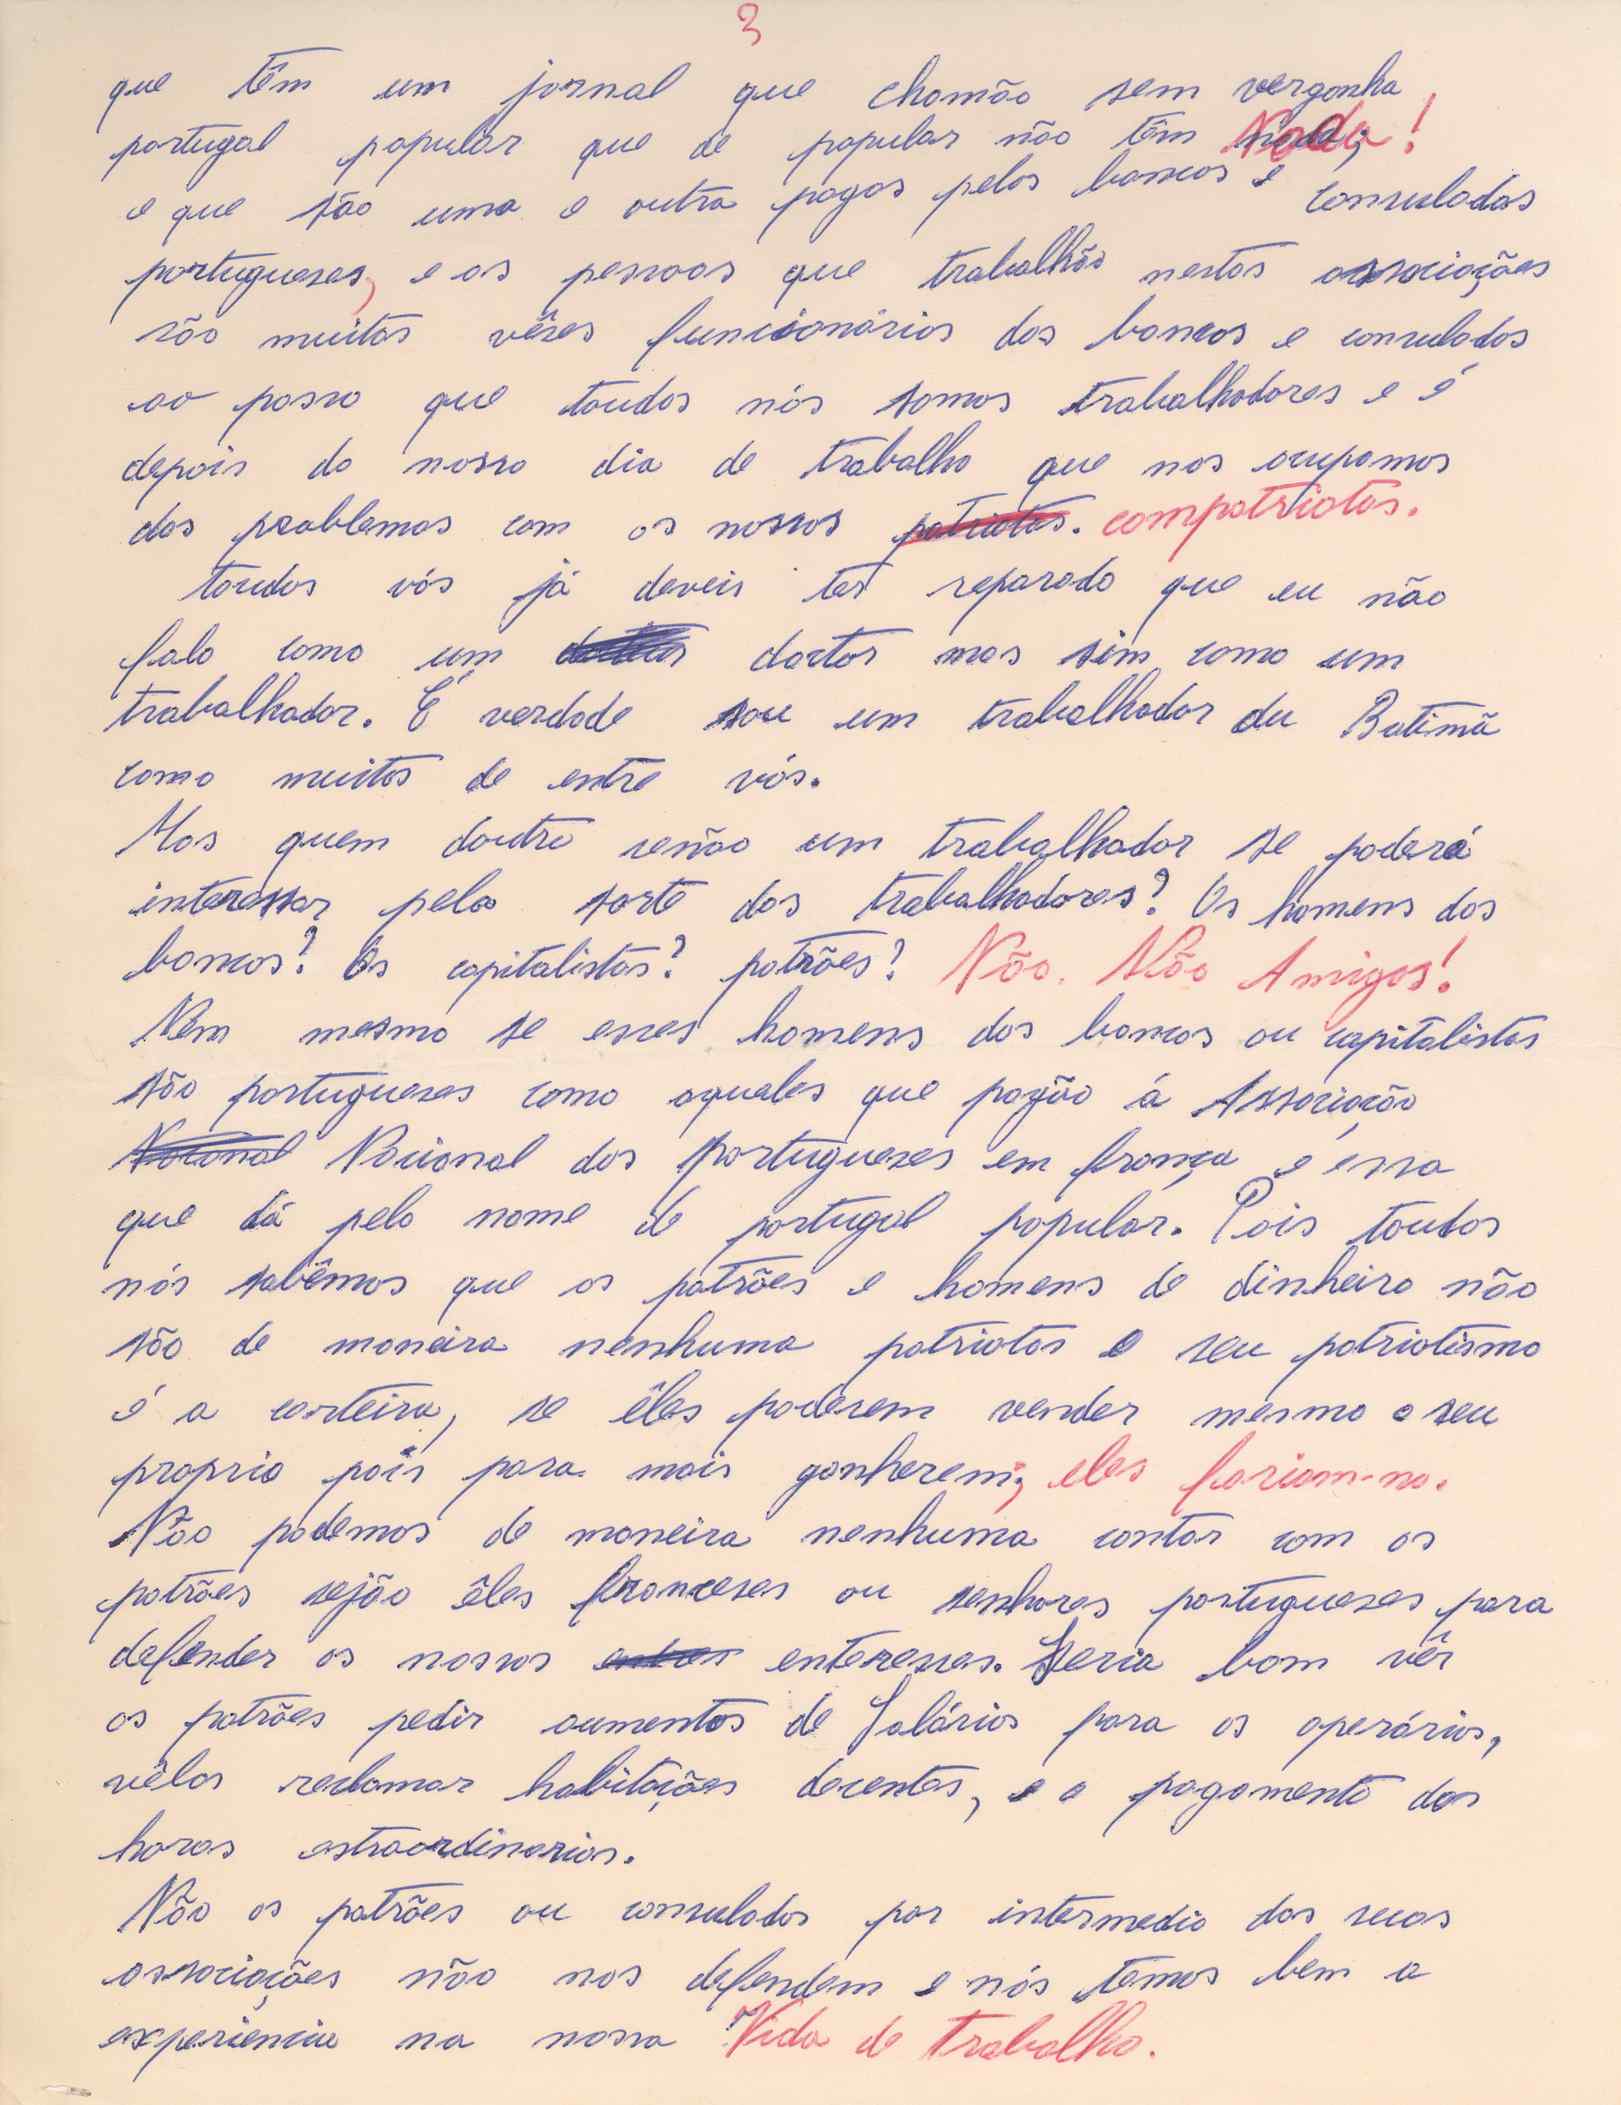 3
que têm um jornal que chamão sem vergonha
portugal popular que de popular não têm Nada!
e que são uma e outra pagas pelos bancos e consulados
portugueses, e as pessoas que trabalhão nestas associações
são muitas vêzes funcionários dos bancos e consulados
ao passo que toudos nós somos trabalhadores e é
depois do nosso dia de trabalho que nos ocupamos
dos problemas com os nossos patriotas. compatriotas.
toudos vós já deveis ter reparado que eu não
falo como um doctor mas sim como um
trabalhador. É verdade sou um trabalhador du Batimã
como muitos de entre vós.
Mas quem doutro senão um trabalhador se poderá
interessar pela sorte dos trabalhadores? Os homens dos
bancos? Os capitalistas? patrões? Não. Não Amigos!
Nem mesmo se esses homens dos bancos ou capitalistas
são portugueses como aqueles que pagão á Associação
Nacional Nacional dos portugueses em frança e éssa
que dá pelo nome de portugal popular. Pois toudos
nós sabêmos que os patrões e homens de dinheiro não
são de maneira nenhuma patriotas o seu patriotismo
é a carteira, se êles poderem vender mesmo o seu
proprio pais para mais ganherem; eles fariam-no.
Não podemos de maneira nenhuma contar com os
patrões sejão êles franceses ou senhores portugueses para
defender os nossos enteresses. Seria bom vêr
os patrões pedir aumentos de Salários para os operários,
vêlos reclamar habitações decentes, e o pagamento das
horas estraordinarias.
Não os patrões ou consulados por intermedio das suas
associações não nos defendem e nós temos bem a
experiencia na nossa Vida de Trabalho.